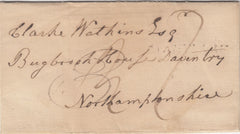 Clarke Watkins Esq
Bugbrook House Daintry
Northamptonshire